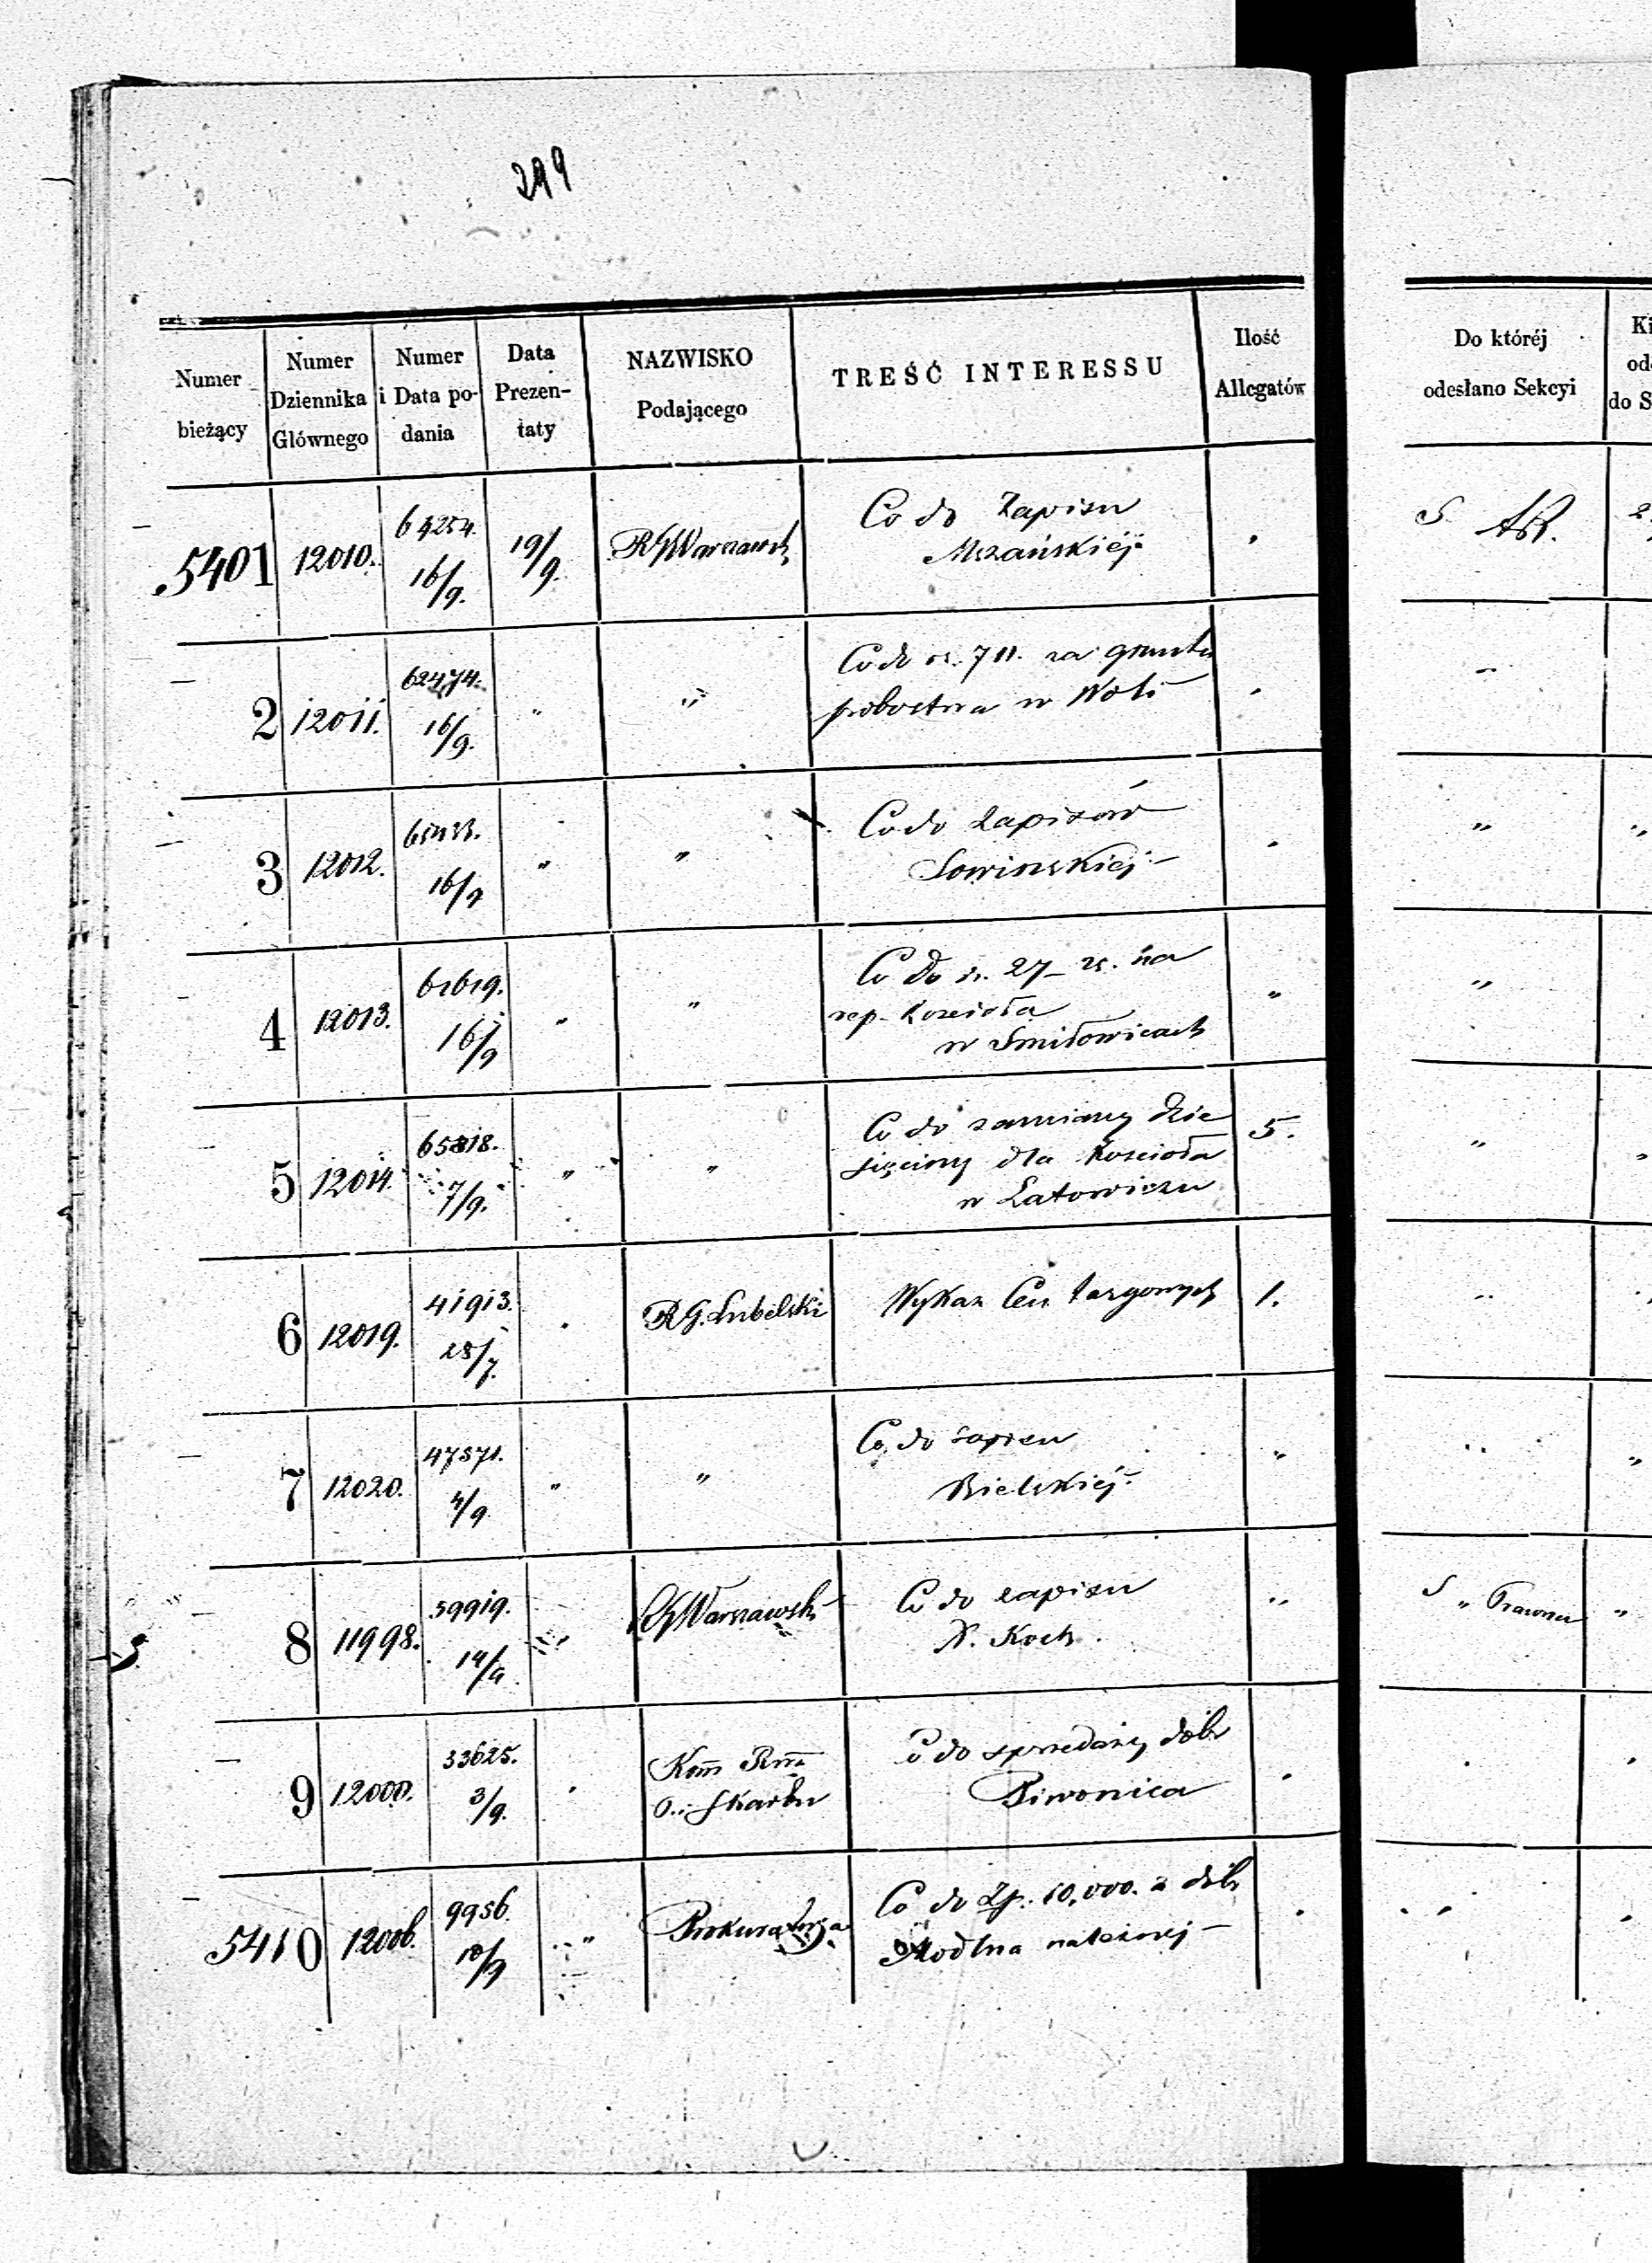 299
Numer bieżący | Numer Dziennika Głównego | Numer i Data podania | Data Prezentaty | NAZWISKO Podającego | TREŚĆ INTERESSU | Ilość Allegatów | Do któréj odesłano Sekcyi
5401 | 12010. | 64254. 16/9. | 19/9. | RGWarszawsk | Co do Zapisu
Mszańskiéj | S.
2 | 12011. | 62474. 16/9. | " | " | Co do rs. 711. za grunta
probostwa w Woli | "
3 | 12012. | 16/9 | " | " | Co do zapisów
Sowinskiej | "
4 | 12013. | 61619. 16/9 | " | " | Co do rs. 27 na
rep. Kościoła
w Smiłowicach | " | "
5 | 12014. | 65818. 7/9. | " | " | Co do zamiany dzie
sięciny dla Kościoła
w Latowiczu | 5. | "
6 | 12019. | 41913. 28/7. | " | RG. Lubelski | Wykaz Cen targowych | 1. | "
7 | 12020. | 47571. 4/9 | " | " | Co do zapisu
Bielskiéj | " | "
8 | 11998. | 59919. 14/9 | " | Warszawsk | Co do zapisu
N. Koch. | " | S " Prawna
9 | 12000. | 33625. 3/9. | " | Kom Rzą
Skarbu | Co do sprzedaży dóbr
Piwonica
5410 | 12006. | 9956. 10/9 | " | Prokuratorja | Co do Zp. 10,000. z dóbr
Modlna należnej | " | "